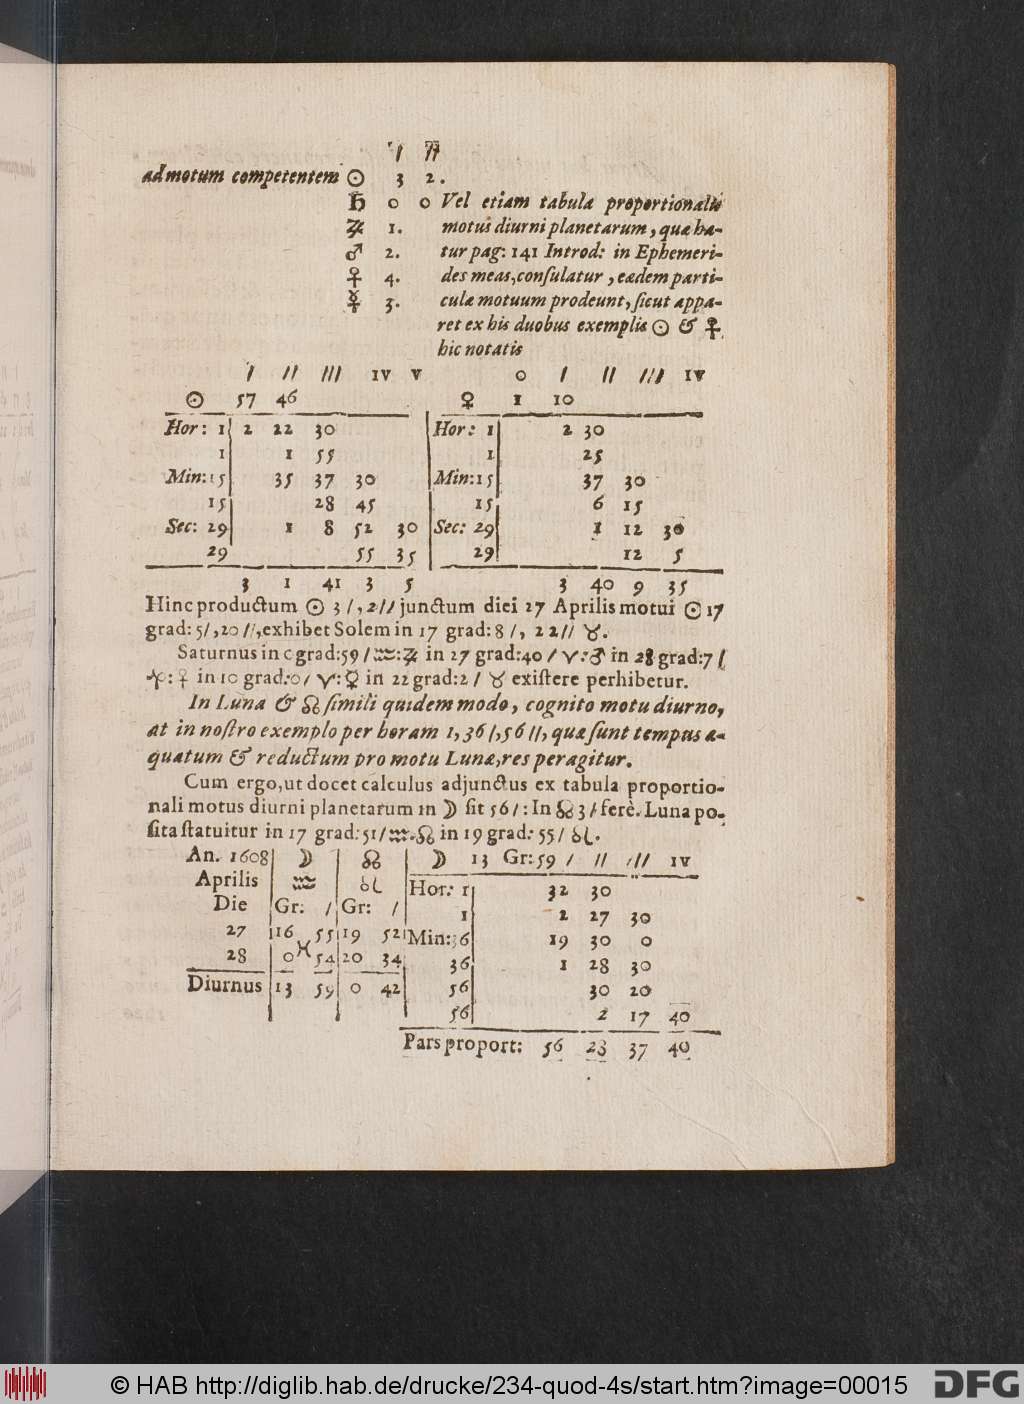 / //
ad motum competentem ☉ 3 2.
♄ 0 0 Vel etiam tabula proportionalis
♃ 1. motus diurni planetarum, quæ ha-
♂ 2. tur pag: 141 Introd: in Ephemeri-
♀ 4. des meas, conſulatur, eædem parti-
☿ 3. culæ motuum prodeunt, ſicut appa-
ret ex his duobus exemplis ☉ & ♀
hic notatis
/ // /// IV V o / // /// IV
☉ 57 46 ♀ 1 10
Hor: 1 2 22 30 Hor: 1 2 30
1 1 55 1 25
Min: 15 35 37 30 Min: 15 37 30
15 28 45 15 6 15
Sec: 29 1 8 52 30 Sec: 29 1 12 30
29 55 35 29 12 5
3 1 41 3 5 3 40 9 35
Hinc productum ☉ 3 /, 2 // junctum diei 27 Aprilis motui ☉ 17
grad: 5/, 20 //, exhibet Solem in 17 grad: 8 /, 22 // ♉.
Saturnus in 0 grad: 59 / ♒: ♃ in 27 grad: 40 / ♈: ♂ in 28 grad: 7 /
♈: ♀ in 10 grad: 0 / ♈: ☿ in 22 grad: 2 / ♉ exiſtere perhibetur.
In Luna & ☊ ſimili quidem modo, cognito motu diurno,
at in noſtro exemplo per horam 1, 36 /, 56 //, quæ ſunt tempus æ-
quatum & reductum pro motu Lunæ, res peragitur.
Cum ergo, ut docet calculus adjunctus ex tabula proportio-
nali motus diurni planetarum in ☽ ſit 56 /: In ☊ 3 / ferè. Luna po-
ſita ſtatuitur in 17 grad: 51 / ♒. ☊ in 19 grad: 55 / ♌.
An. 1608 ☽ ☊ ☽ 13 Gr: 59 / // /// IV
Aprilis ♒ ♌ Hor: 1 32 30
Die Gr: / Gr: / 1 2 27 30
27 16 55 19 52 Min: 36 19 30 0
28 0 ♓ 54 20 34 36 1 28 30
Diurnus 13 59 0 42 56 30 20
56 2 17 40
Pars proport: 56 23 37 40
© HAB http://diglib.hab.de/drucke/234-quod-4s/start.htm?image=00015
DFG